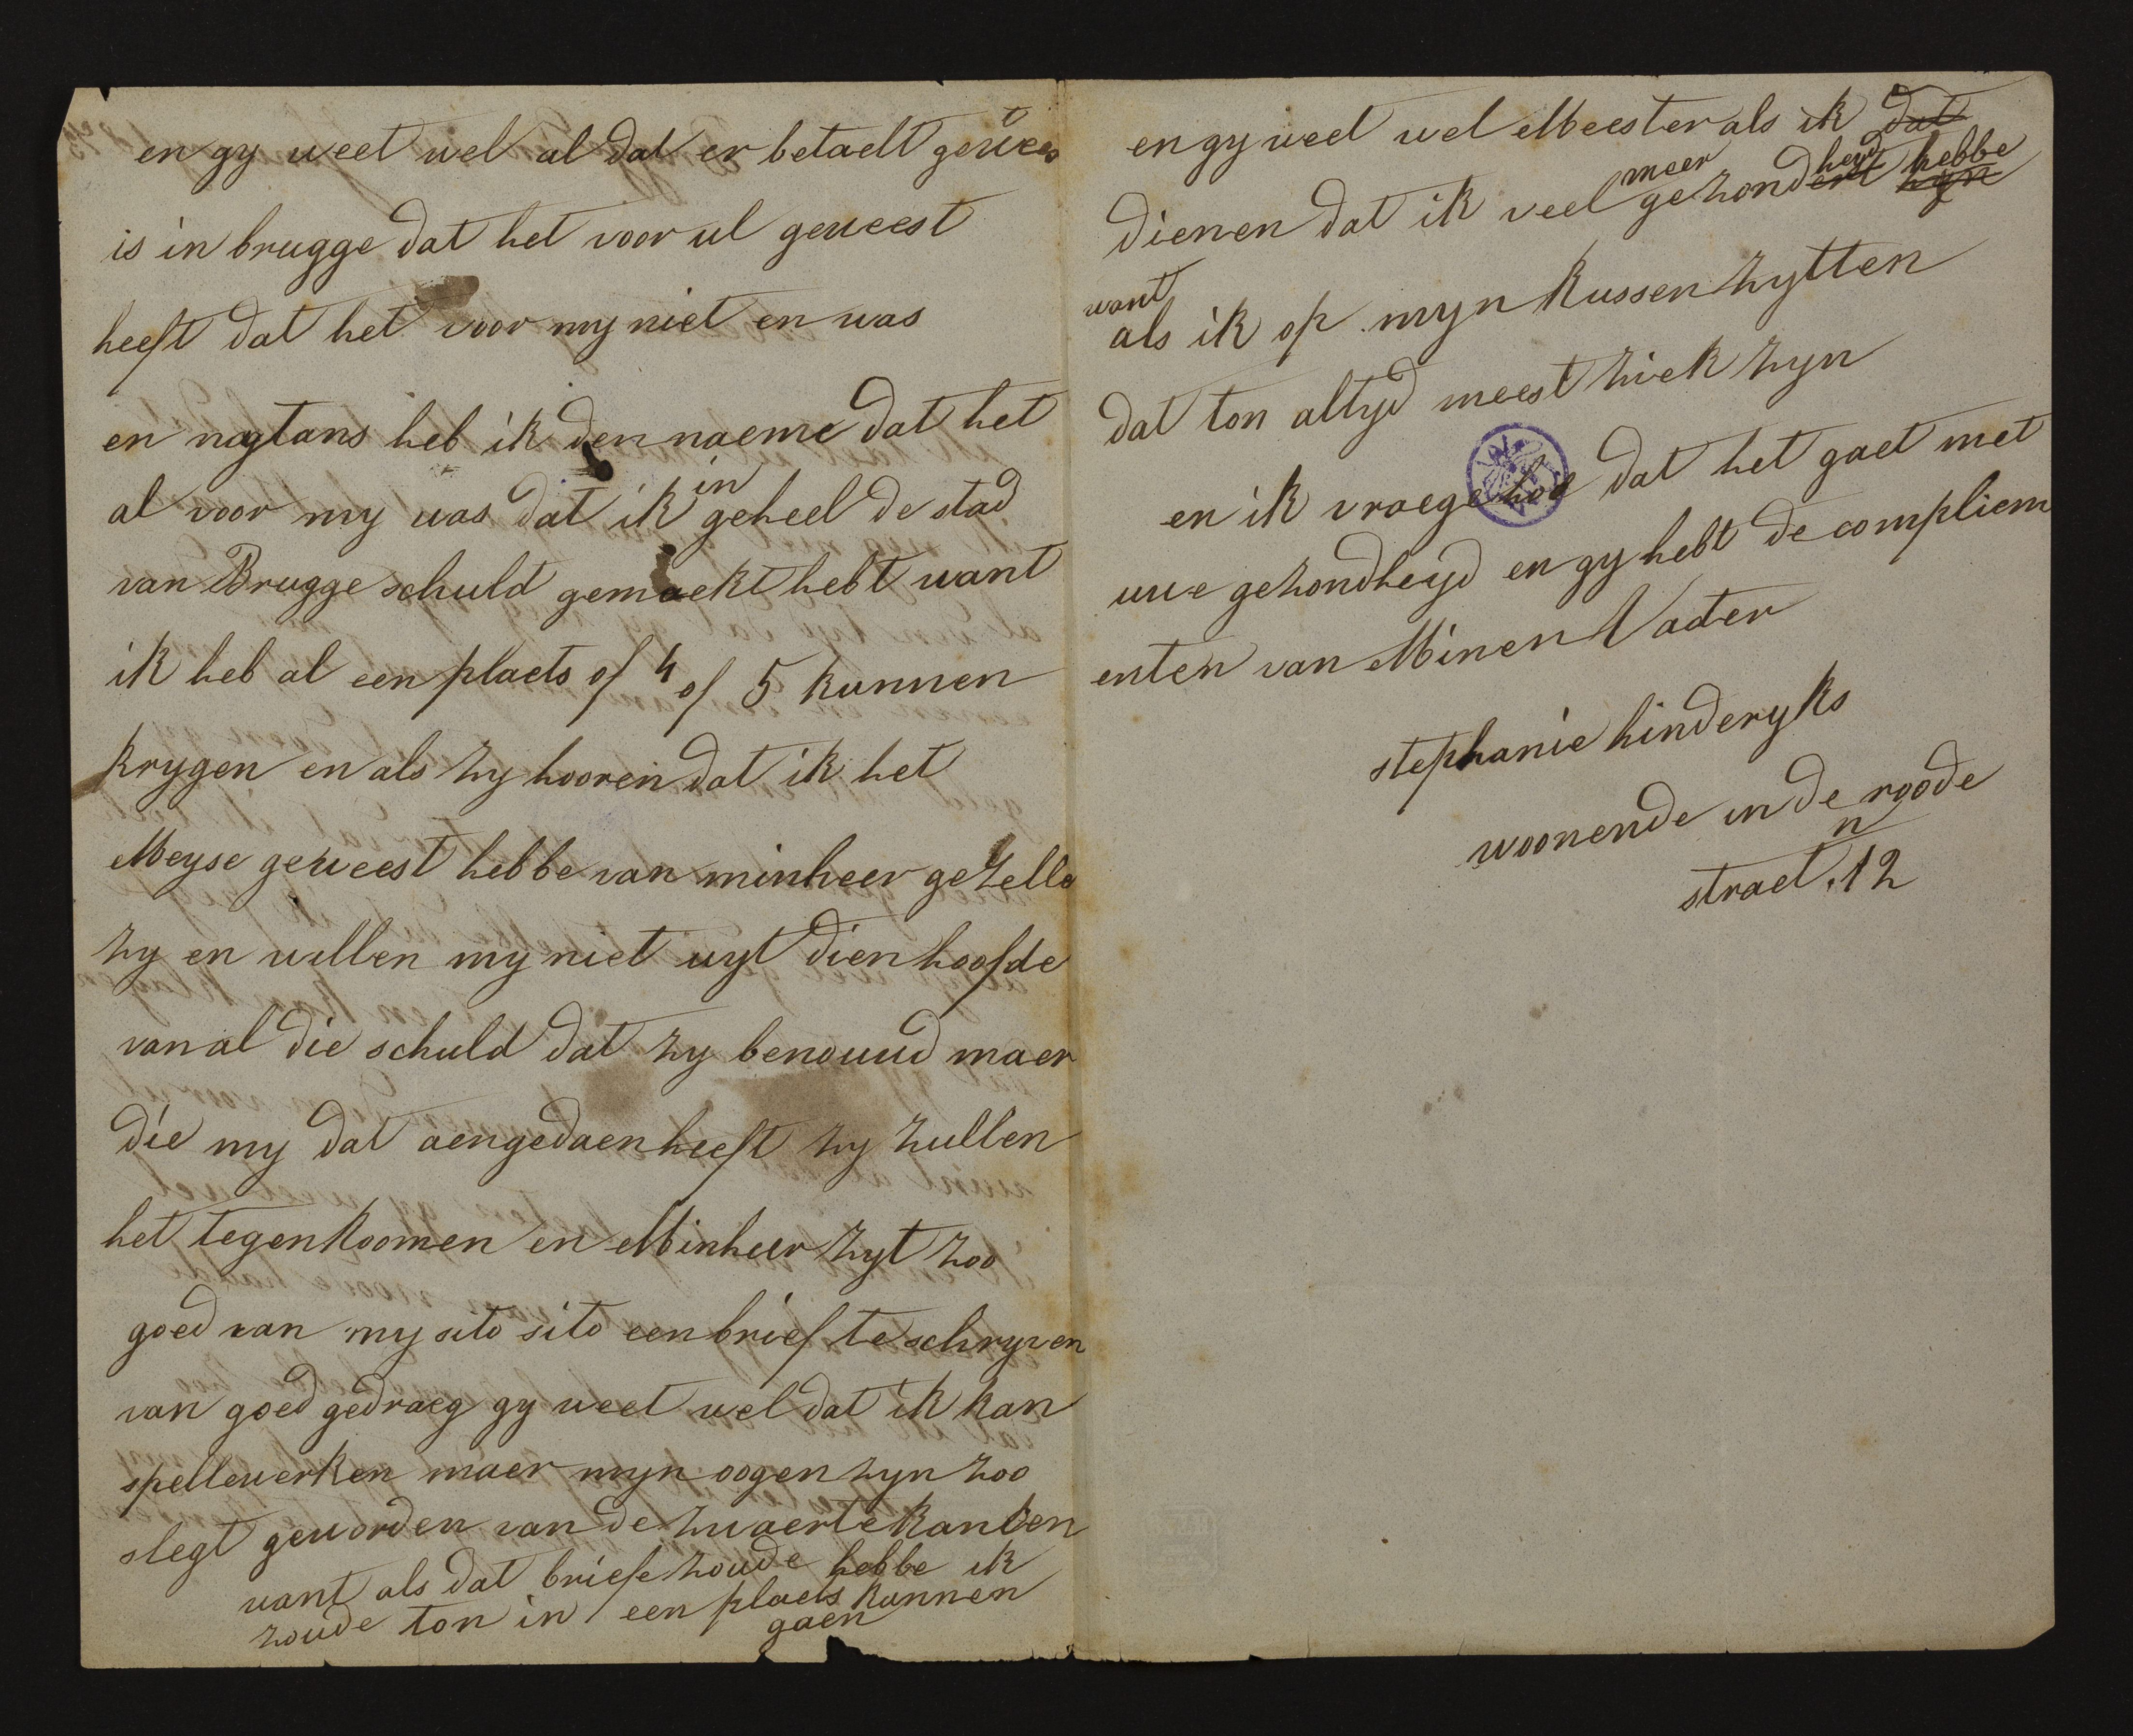 en gy weet wel al dat er betaelt gewees
t
is in brugge dat het voor ul geweest
heeft dat het voor my niet en was
en nogtans heb ik den naeme dat het
al voor my was dat ik in geheel de stad
van Brugge schuld gemaekt hebt want
ik heb al een plaets of 4 of 5 kunnen
krygen en als zy hooren dat ik het
Meyse geweest hebbe van minheer gezelle
zy en willen my niet uyt dien hoofde
van al die schuld dat zy benouud maer
die my dat aengedaen heeft zy zullen
het tegenkoomen en Minheer zyt zoo
goed van my sito sito een brief te schryven
van goed gedraeg gy weet wel dat ik kan
spellewerken maer myn oogen zyn zoo
slegt geworden van de zwaerte kanten
want als dat briefe zoude hebbe ik
zoude ton in een plaets kunnen
gaen
en gy weet wel Meester als ik dat
dienen dat ik veel meer gezondheyd hebbe
want
als ik op myn kussen zytten
dat ton altyd meest ziek zyn
en ik vraege hoe dat het gaet met
uwe gezondheyd en gy hebt de compliem
enten van Minen Vader
stephanie hinderyks
woonende in de roode
straet n 12